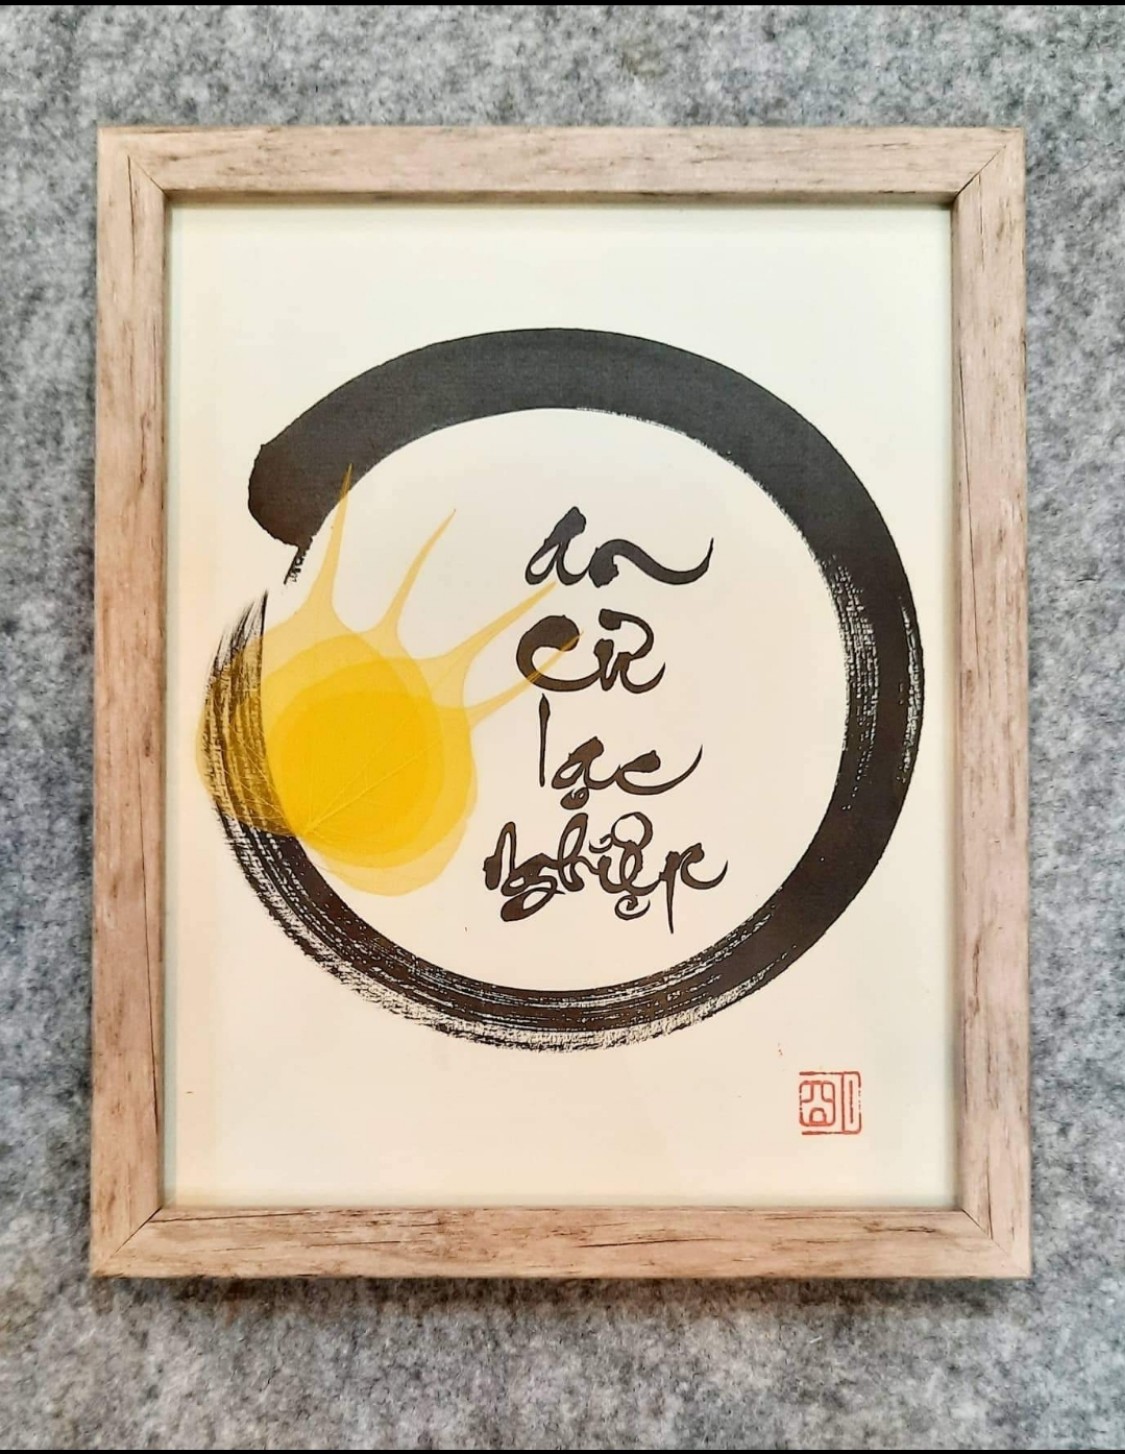 an
cư
lạc
nghiệp